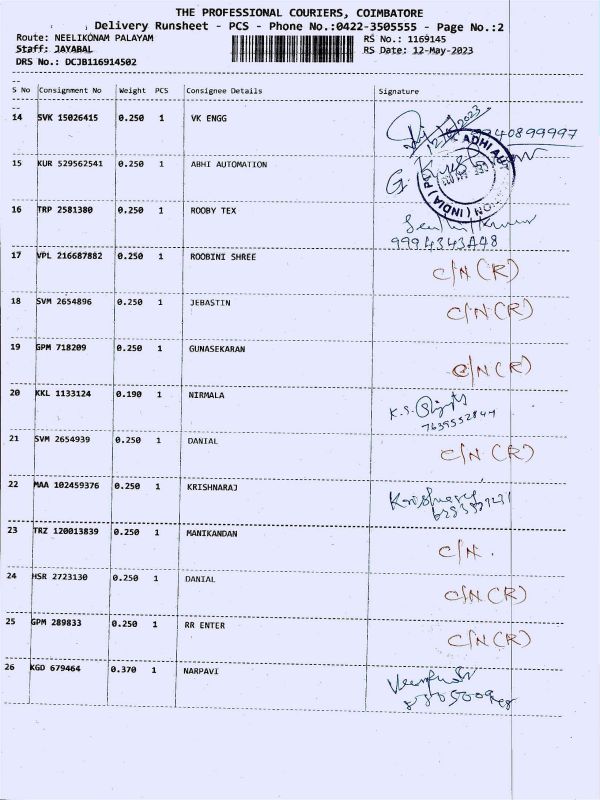 THE PROFESSIONAL COURIERS, COIMBATORE
Delivery Runsheet - PCS - Phone No.:0422-3505555 - Page No.:2
Route: NEELIKONAM PALAYAM RS No.: 1169145
Staff: JAYABAL RS Date: 12-May-2023
DRS No.: DCJB116914502
S No Consignment No Weight PCS Consignee Details Signature
14 SVK 15026415 0.250 1 VK ENGG
12/5/2023
9940899997
15 KUR 529562541 0.250 1 ABHI AUTOMATION
ADHI AUT (INDIA) (P
16 TRP 2581380 0.250 1 ROOBY TEX
9994343448
17 VPL 216687882 0.250 1 ROOBINI SHREE C/N (R)
18 SVM 2654896 0.250 1 JEBASTIN C/N (R)
19 GPM 718209 0.250 1 GUNASEKARAN C/N (R)
20 KKL 1133124 0.190 1 NIRMALA K.S.
7639552844
21 SVM 2654939 0.250 1 DANIAL C/N (R)
22 MAA 102459376 0.250 1 KRISHNARAJ Krishnaraj
23 TRZ 120013839 0.250 1 MANIKANDAN C/N.
24 HSR 2723130 0.250 1 DANIAL C/N (R)
25 GPM 289833 0.250 1 RR ENTER C/N (R)
26 KGD 679464 0.370 1 NARPAVI